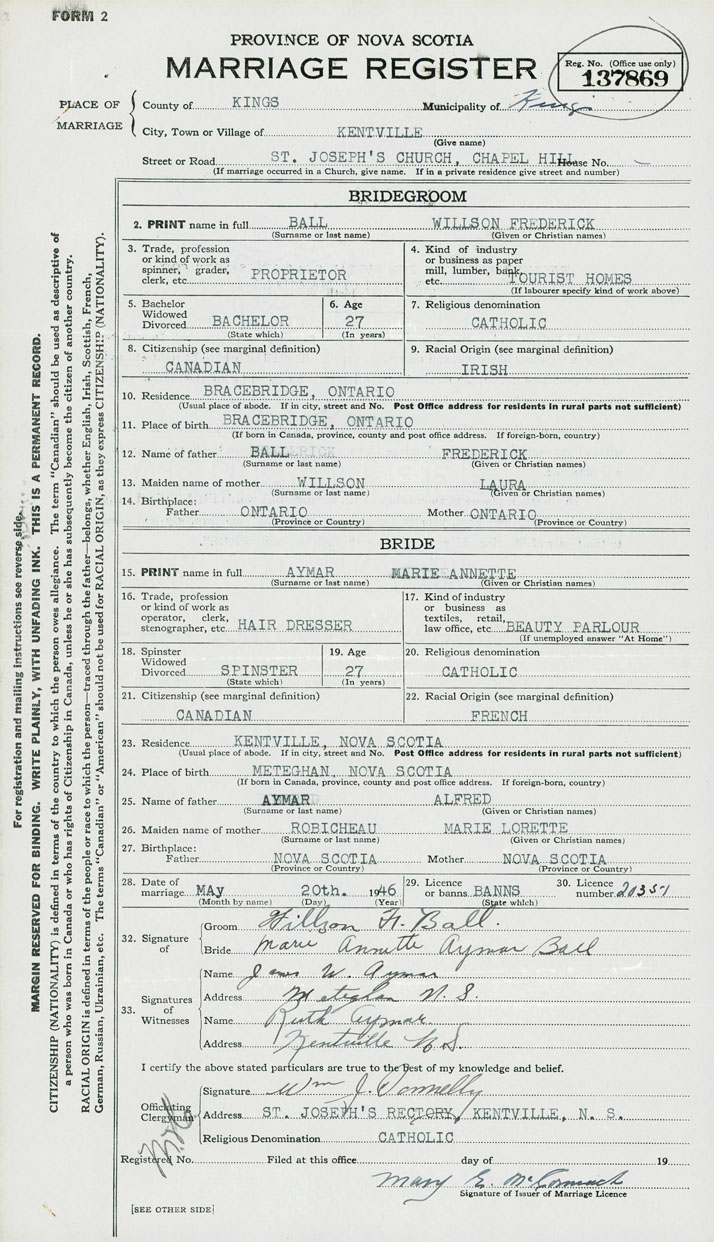 FORM 2
PROVINCE OF NOVA SCOTIA
MARRIAGE REGISTER
Reg. No. (Office use only)
137869
PLACE OF MARRIAGE
County of KINGS Municipality of Kings
City, Town or Village of KENTVILLE
(Give name)
Street or Road ST. JOSEPH'S CHURCH, CHAPEL HILL House No. —
(If marriage occurred in a Church, give name. If in a private residence give street and number)
BRIDEGROOM
2. PRINT name in full BALL WILLSON FREDERICK
(Surname or last name) (Given or Christian names)
3. Trade, profession or kind of work as spinner, grader, clerk, etc. PROPRIETOR
4. Kind of industry or business as paper mill, lumber, bank, etc. TOURIST HOMES
(If labourer specify kind of work above)
5. Bachelor Widowed Divorced BACHELOR
(State which)
6. Age 27
(In years)
7. Religious denomination
CATHOLIC
8. Citizenship (see marginal definition)
CANADIAN
9. Racial Origin (see marginal definition)
IRISH
10. Residence BRACEBRIDGE, ONTARIO
(Usual place of abode. If in city, street and No. Post Office address for residents in rural parts not sufficient)
11. Place of birth BRACEBRIDGE, ONTARIO
(If born in Canada, province, county and post office address. If foreign-born, country)
12. Name of father BALL FREDERICK
(Surname or last name) (Given or Christian names)
13. Maiden name of mother WILLSON LAURA
(Surname or last name) (Given or Christian names)
14. Birthplace:
Father ONTARIO Mother ONTARIO
(Province or Country) (Province or Country)
BRIDE
15. PRINT name in full AYMAR MARIE ANNETTE
(Surname or last name) (Given or Christian names)
16. Trade, profession or kind of work as operator, clerk, stenographer, etc. HAIR DRESSER
17. Kind of industry or business as textiles, retail, law office, etc. BEAUTY PARLOUR
(If unemployed answer "At Home")
18. Spinster Widowed Divorced SPINSTER
(State which)
19. Age 27
(In years)
20. Religious denomination
CATHOLIC
21. Citizenship (see marginal definition)
CANADIAN
22. Racial Origin (see marginal definition)
FRENCH
23. Residence KENTVILLE, NOVA SCOTIA
(Usual place of abode. If in city, street and No. Post Office address for residents in rural parts not sufficient)
24. Place of birth METEGHAN, NOVA SCOTIA
(If born in Canada, province, county and post office address. If foreign-born, country)
25. Name of father AYMAR ALFRED
(Surname or last name) (Given or Christian names)
26. Maiden name of mother ROBICHEAU MARIE LORETTE
(Surname or last name) (Given or Christian names)
27. Birthplace:
Father NOVA SCOTIA Mother NOVA SCOTIA
(Province or Country) (Province or Country)
28. Date of marriage MAY 20th. 1946
(Month by name) (Day) (Year)
29. Licence or banns BANNS
(State which)
30. Licence number 20351
32. Signature of
Groom Willson F. Ball.
Bride Marie Annette Aymar Ball
33. Signatures of Witnesses
Name James W. Aymar
Address Meteghan N. S.
Name Ruth Aymar
Address Kentville N S.
I certify the above stated particulars are true to the best of my knowledge and belief.
Officiating Clergyman
Signature Wm J. Donnelly
Address ST. JOSEPH'S RECTORY, KENTVILLE, N. S.
Religious Denomination CATHOLIC
Registered No. Filed at this office day of 19
Mary E. McCormack
Signature of Issuer of Marriage Licence
[SEE OTHER SIDE]
For registration and mailing instructions see reverse side.
MARGIN RESERVED FOR BINDING. WRITE PLAINLY, WITH UNFADING INK. THIS IS A PERMANENT RECORD.
CITIZENSHIP (NATIONALITY) is defined in terms of the country to which the person owes allegiance. The term "Canadian" should be used as descriptive of
a person who was born in Canada or who has rights of Citizenship in Canada, unless he or she has subsequently become the citizen of another country.
RACIAL ORIGIN is defined in terms of the people or race to which the person—traced through the father—belongs, whether English, Irish, Scottish, French,
German, Russian, Ukrainian, etc. The terms "Canadian" or "American" should not be used for RACIAL ORIGIN, as they express CITIZENSHIP (NATIONALITY).